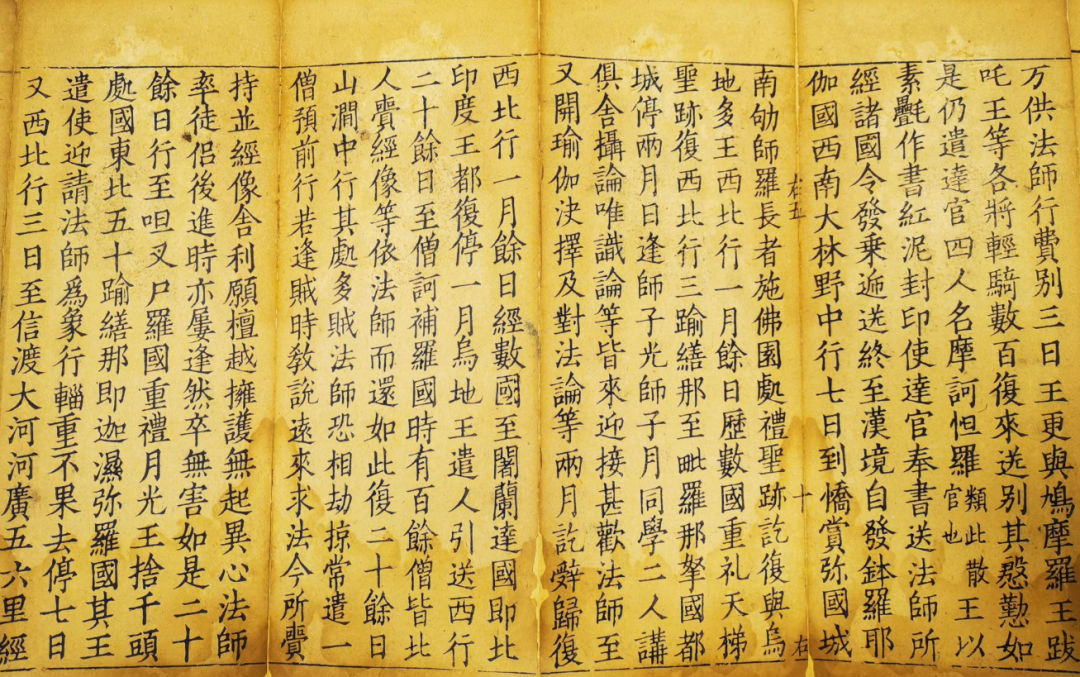 万供法師行費別三日王更與鳩摩羅王跋
吒王等各將輕騎數百復來送別其慇懃如
是仍遣達官四人名摩訶怛羅類此散官也王以
素㲲作書紅泥封印使達官奉書送法師所
經諸國令發乘遞送終至漢境自發鉢羅耶
伽國西南大林野中行七日到憍賞弥國城
右五
十
右
南劬師羅長者施佛園處禮聖跡訖復與烏
地多王西北行一月餘日歷數國重礼天梯
聖跡復西北行三踰繕那至毗羅那拏國都
城停兩月日逢師子光師子月同學二人講
俱舍攝論唯識論等皆來迎接甚歡法師至
又開瑜伽決擇及對法論等兩月訖辭歸復
西北行一月餘日經數國至闍蘭達國即北
印度王都復停一月烏地王遣人引送西行
二十餘日至僧訶補羅國時有百餘僧皆北
人賷經像等依法師而還如此復二十餘日
山澗中行其處多賊法師恐相劫掠常遣一
僧預前行若逢賊時教說遠來求法今所賷
持並經像舍利願檀越擁護無起異心法師
率徒侶後進時亦屢逢然卒無害如是二十
餘日行至呾叉尸羅國重禮月光王捨千頭
處國東北五十踰繕那即迦濕弥羅國其王
遣使迎請法師爲象行輜重不果去停七日
又西北行三日至信渡大河河廣五六里經